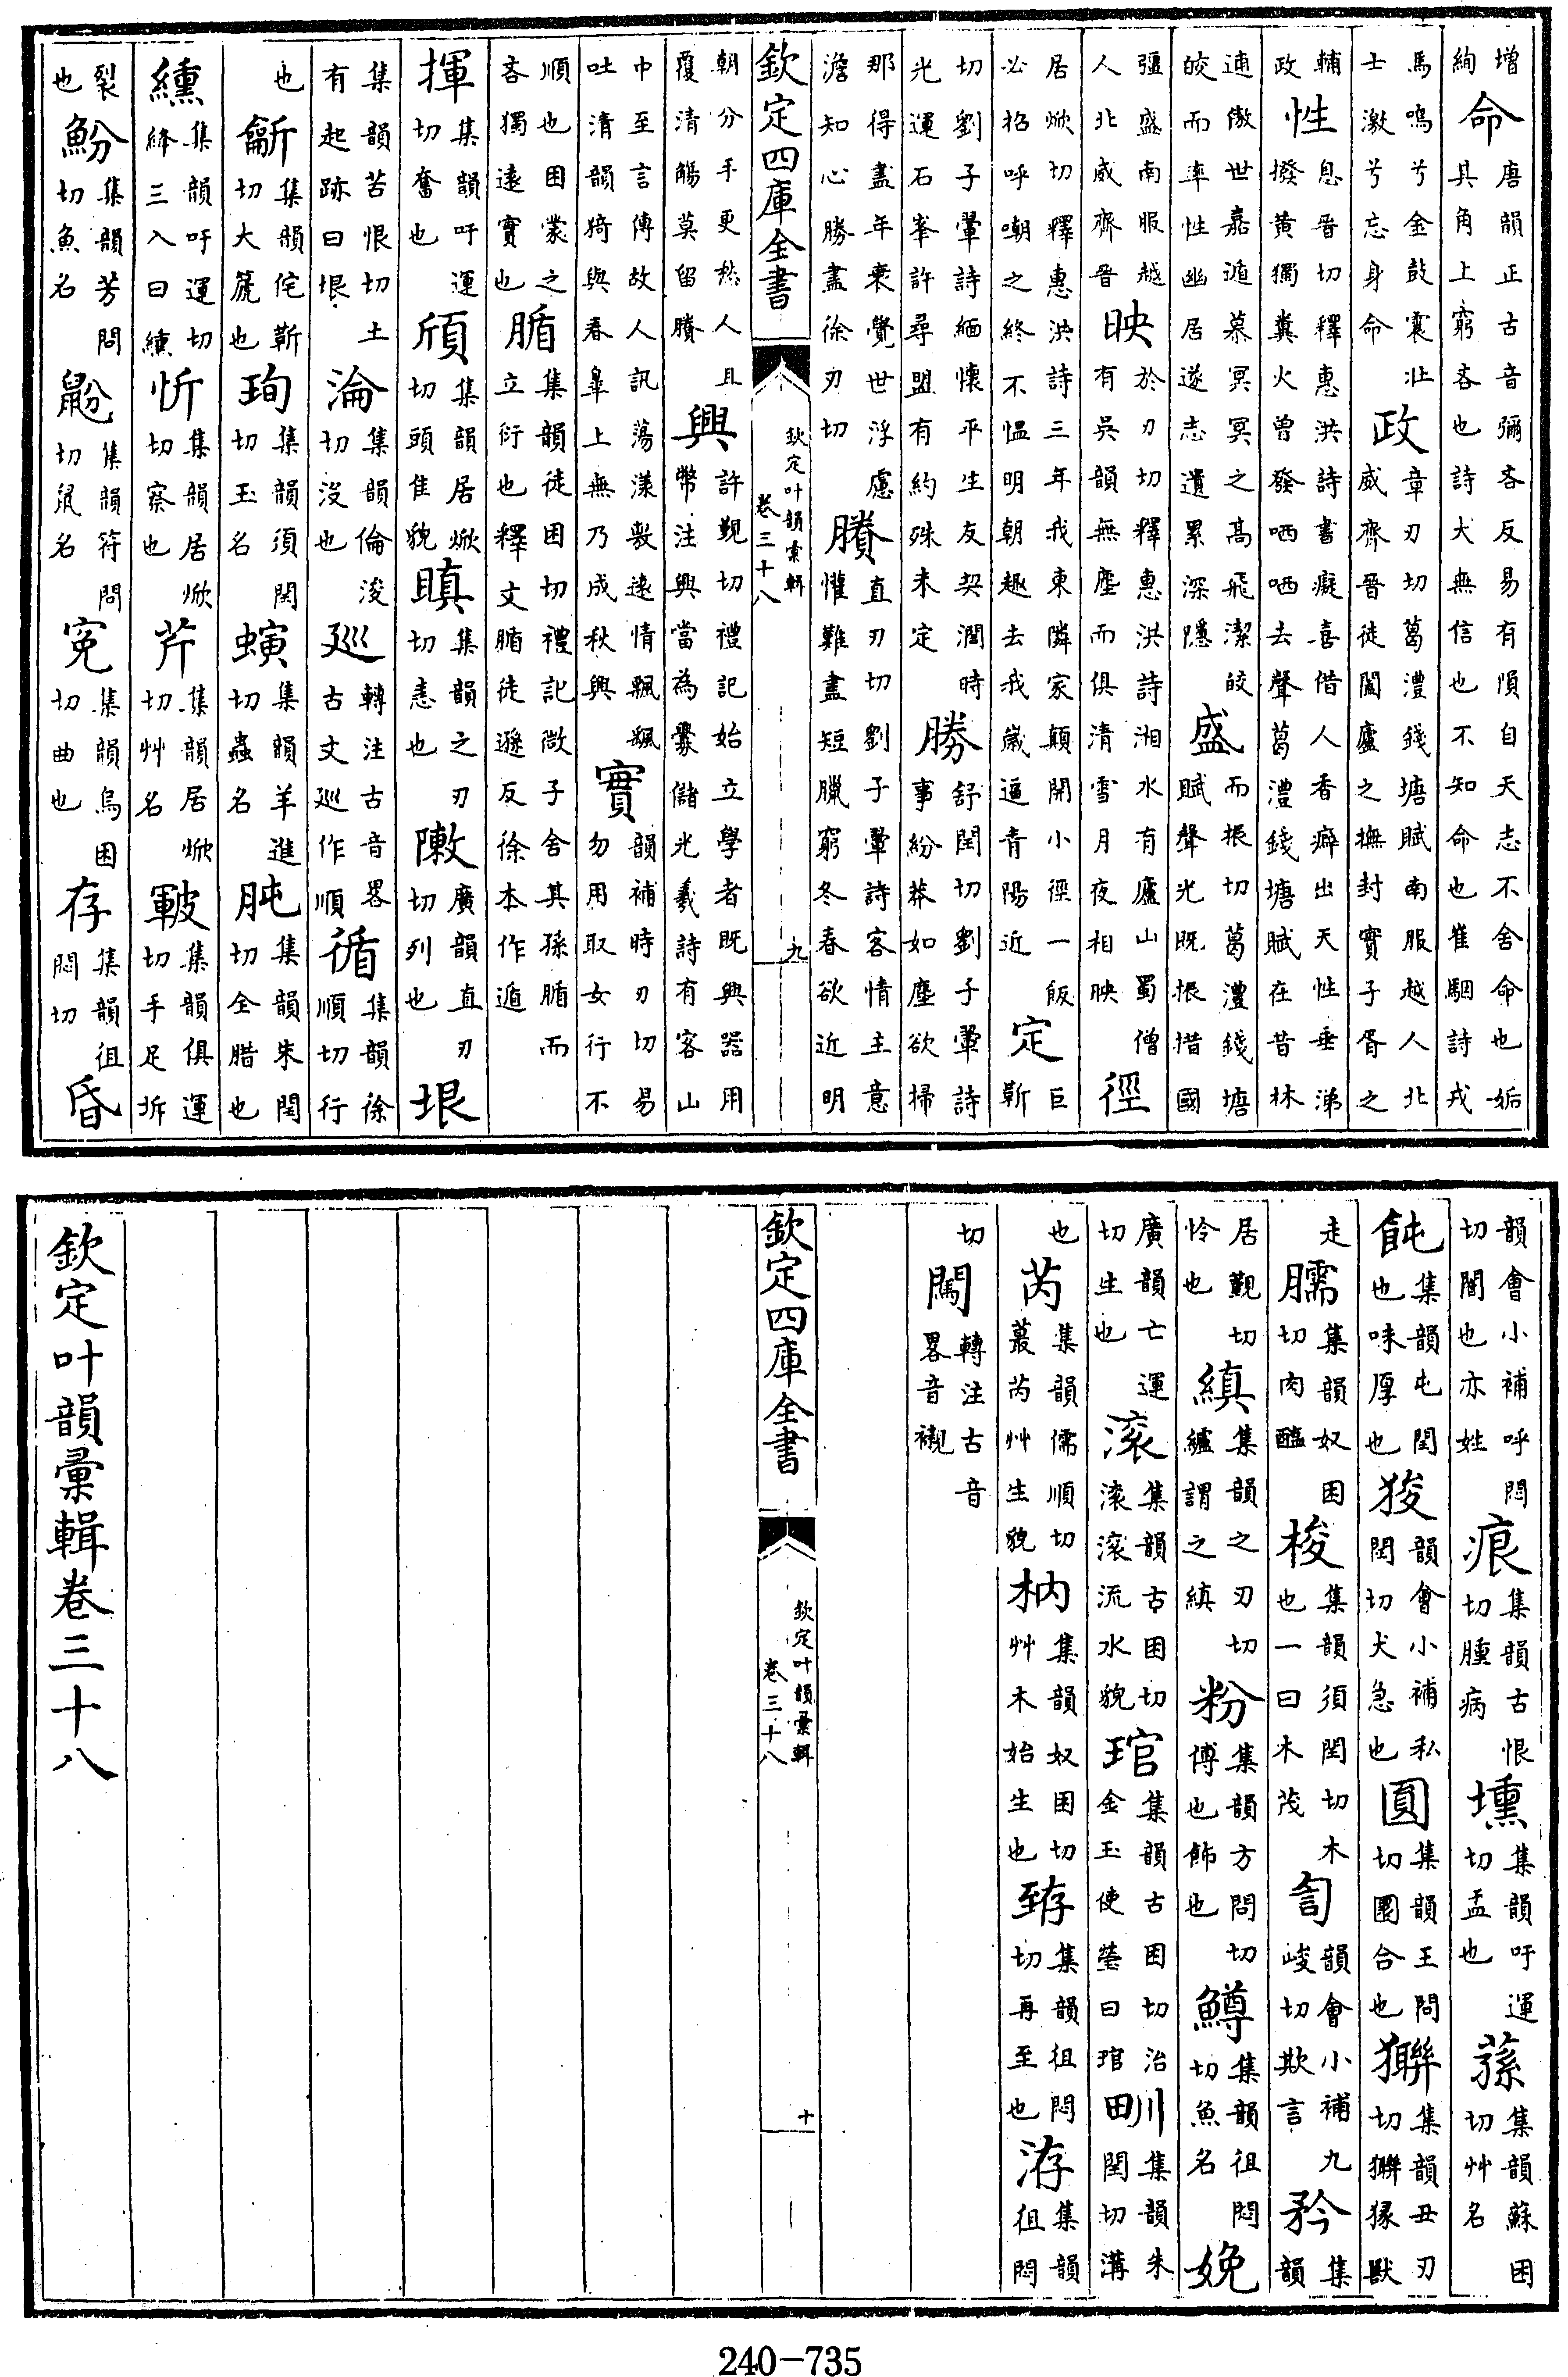 增絢命唐韻正古音彌吝反易有隕自天志不舍命也姤其角上窮吝也詩大無信也不知命也崔駰詩戎
馬鳴兮金鼓震壯士激兮忘身命政章刃切葛澧錢塘賦南服越人北威齊晉徒闔廬之撫封實子胥之
輔政性息晉切釋惠洪詩書癡喜借人香癖出天性垂涕撥黄獨糞火曾發哂哂去聲葛澧錢塘賦在昔林
逋傲世嘉遁慕冥冥之高飛潔皎皎而率性幽居遂志遺累深隱盛而振切葛澧錢塘賦聲光既振措國
彊盛南服越人北威齊晉映於刃切釋惠洪詩湘水有廬山蜀僧有吳韻無塵而俱清雪月夜相映徑
居焮切釋惠洪詩三年我東隣家顛開小徑一飯必招呼嘲之終不愠明朝趣去我歲逼青陽近定巨靳
切劉子翬詩緬懷平生友契濶時光運石峯許尋盟有約殊未定勝舒閏切劉子翬詩事紛莽如塵欲掃
那得盡年衰覺世浮慮澹知心勝盡徐刃切賸直刃切劉子翬詩客情主意懽難盡短臘窮冬春欲近明
欽定四庫全書 欽定叶韻彙輯 卷三十八 九
朝分手更愁人且覆清觴莫留賸興許覲切禮記始立學者既興器用幣注興當為釁儲光羲詩有客山
中至言傳故人訊蕩漾敷遠情飄颻吐清韻猗與春皋上無乃成秋興實韻補時刃切易勿用取女行不
順也困蒙之吝獨遠實也腯集韻徒困切禮記微子舍其孫腯而立衍也釋文腯徒遜反徐本作遁
揮集韻吁運切奮也頎集韻居焮切頭隹貌瞋集韻之刃切恚也敶廣韻直刃切列也垠
集韻苦恨切土有起跡曰垠淪集韻倫浚切沒也巡轉注古音畧古文巡作順循集韻徐順切行
也䶳集韻佗靳切大箎也珣集韻須閏切玉名螾集韻羊進切蟲名肫集韻朱閏切全腊也
纁集韻吁運切絳三入曰纁忻集韻居焮切察也芹集韻居焮切艸名皸集韻俱運切手足坼
裂也魵集韻芳問切魚名鼢集韻符問切鼠名寃集韻烏困切曲也存集韻徂悶切昏
韻會小補呼悶切闇也亦姓痕集韻古恨切腫病壎集韻吁運切盂也蓀集韻蘇困切艸名
飩集韻屯閏也味厚也狻韻會小補私閏切犬急也圓集韻王問切圜合也集韻丑刃切猭獸
走臑集韻奴困切肉醢梭集韻須閏切木也一曰木茂訇韻會小補九峻切欺言矜集韻
居覲切怜也縝集韻之刃切纑謂之縝粉集韻方問切傅也飾也鱒集韻徂悶切魚名娩
廣韻亡運切生也滚集韻古困切滚滚流水貌琯集韻古困切治金玉使瑩曰琯甽集韻朱閏切溝
也芮集韻儒順切蕞芮艸生貌枘集韻奴困切艸木始生也臶集韻徂悶切再至也洊集韻徂悶
切闖轉注古音畧音襯
欽定四庫全書 欽定叶韻彙輯 卷三十八 十
欽定叶韻彙輯卷三十八
240-735